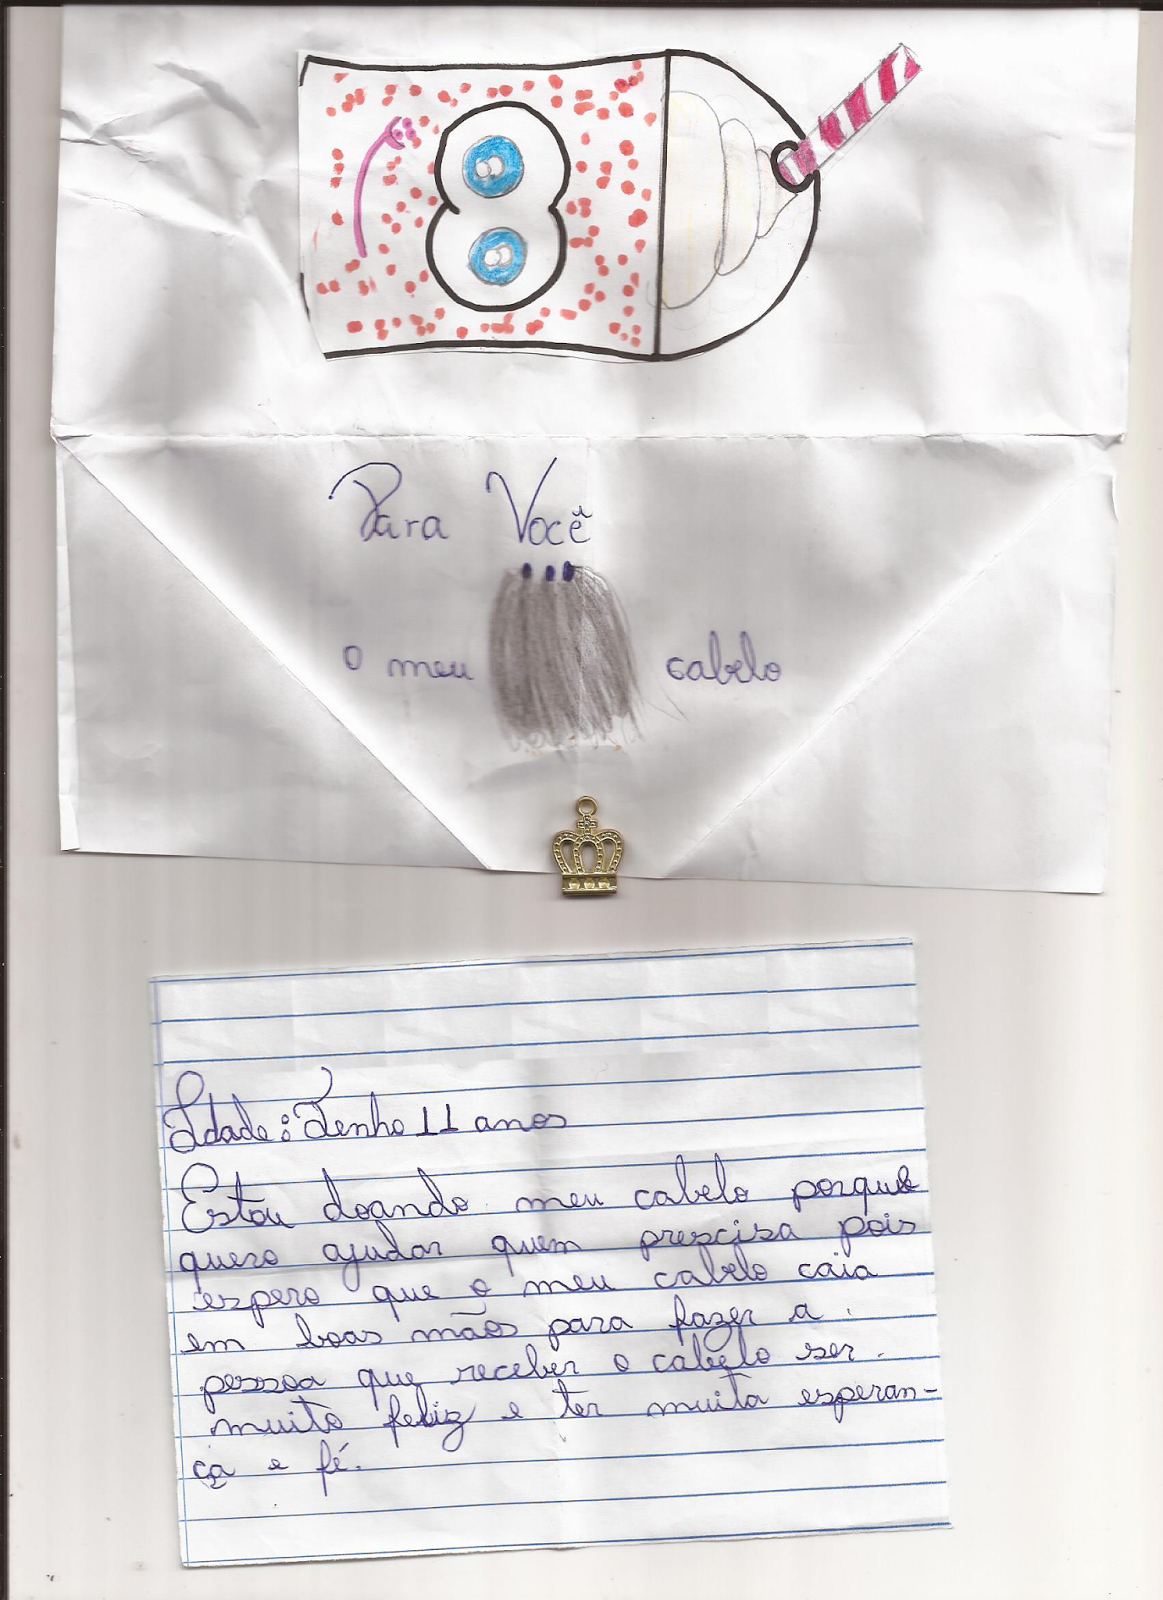 Para Você
o meu cabelo
Idade: Tenho 11 anos
Estou doando meu cabelo porque
quero ajudar quem prescisa pois
espero que o meu cabelo caia
em boas mãos para fazer a
pessoa que receber o cabelo ser
muito feliz e ter muita esperan-
ça e fé.